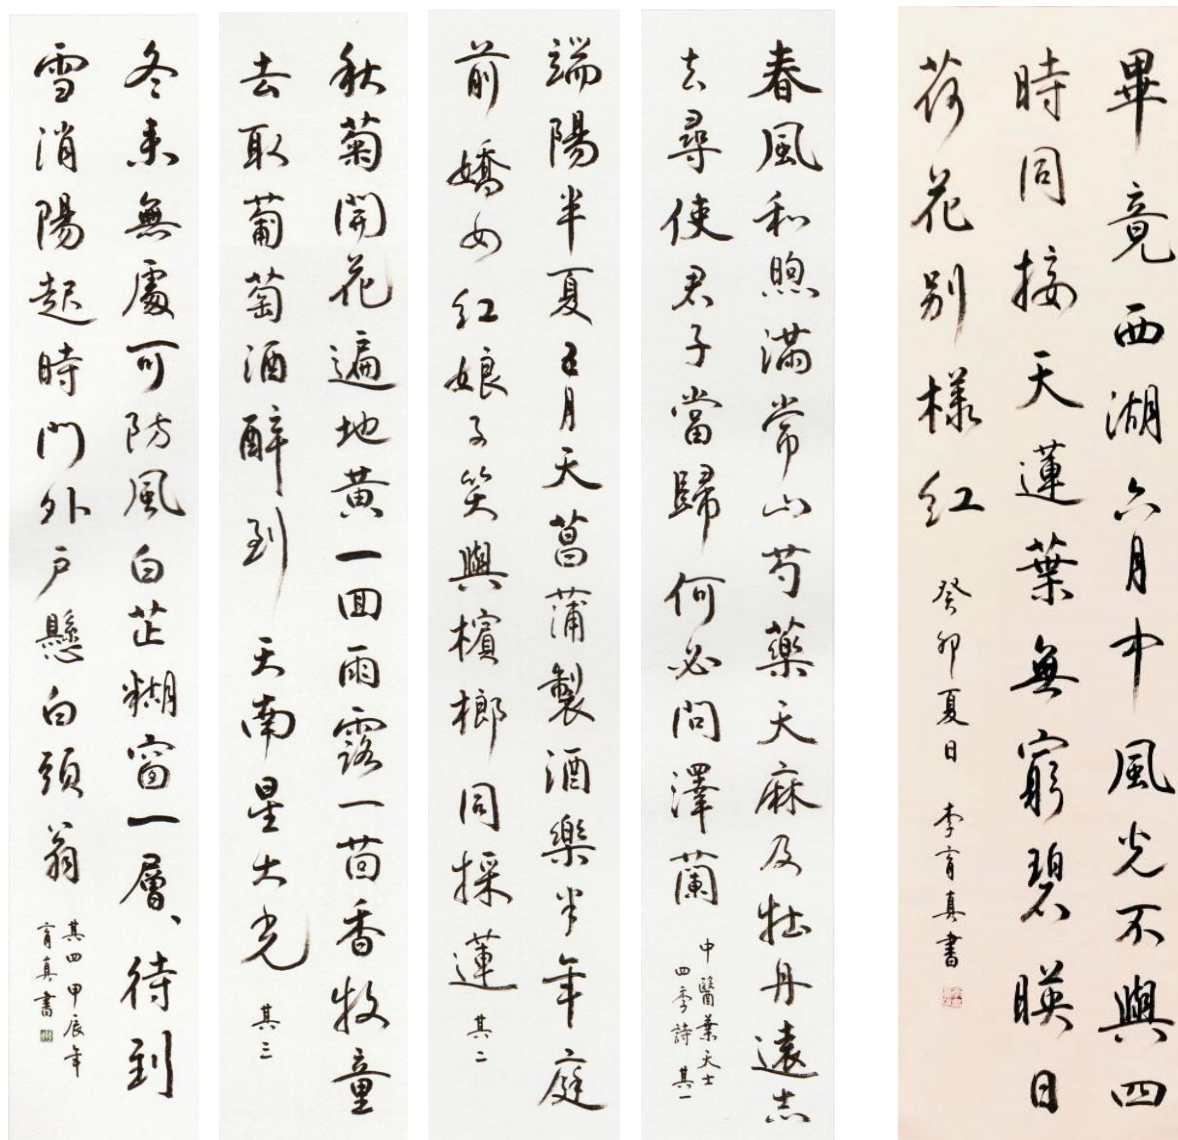 畢竟西湖六月中風光不與四
時同接天蓮葉無窮碧暎日
荷花別樣紅 癸卯夏日 李育真書
春風和煦滿常山芍藥天麻及牡丹遠志
去尋使君子當歸何必問澤蘭
中醫葉天士
四季詩 其一
端陽半夏五月天菖蒲製酒樂半年庭
前嬌女紅娘子笑與檳榔同採蓮 其二
秋菊開花遍地黃一囬雨露一茴香牧童
去取葡萄酒醉到天南星大光 其三
冬來無處可防風白芷糊窗一層、待到
雪消陽起時門外戶懸白頭翁
其四 甲辰年
育真書